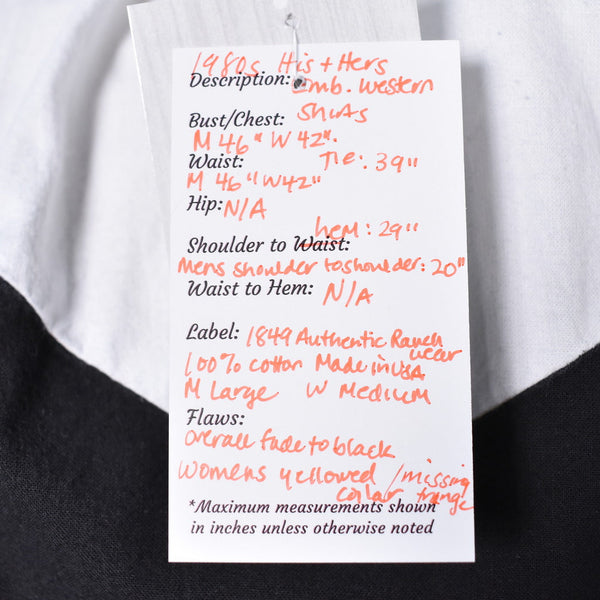 1980s His + Hers
Description: Emb. Western
Shirts
Bust/Chest:
M 46" W 42".
Waist: Tie: 39"
M 46" W 42"
Hip: N/A
hem: 29"
Shoulder to Waist:
Mens shoulder to shoulder: 20"
Waist to Hem: N/A
Label: 1849 Authentic Ranch
wear
100% cotton Made in USA
M Large W Medium
Flaws:
overall fade to black
womens yellowed / missing
collar fringe
*Maximum measurements shown
in inches unless otherwise noted